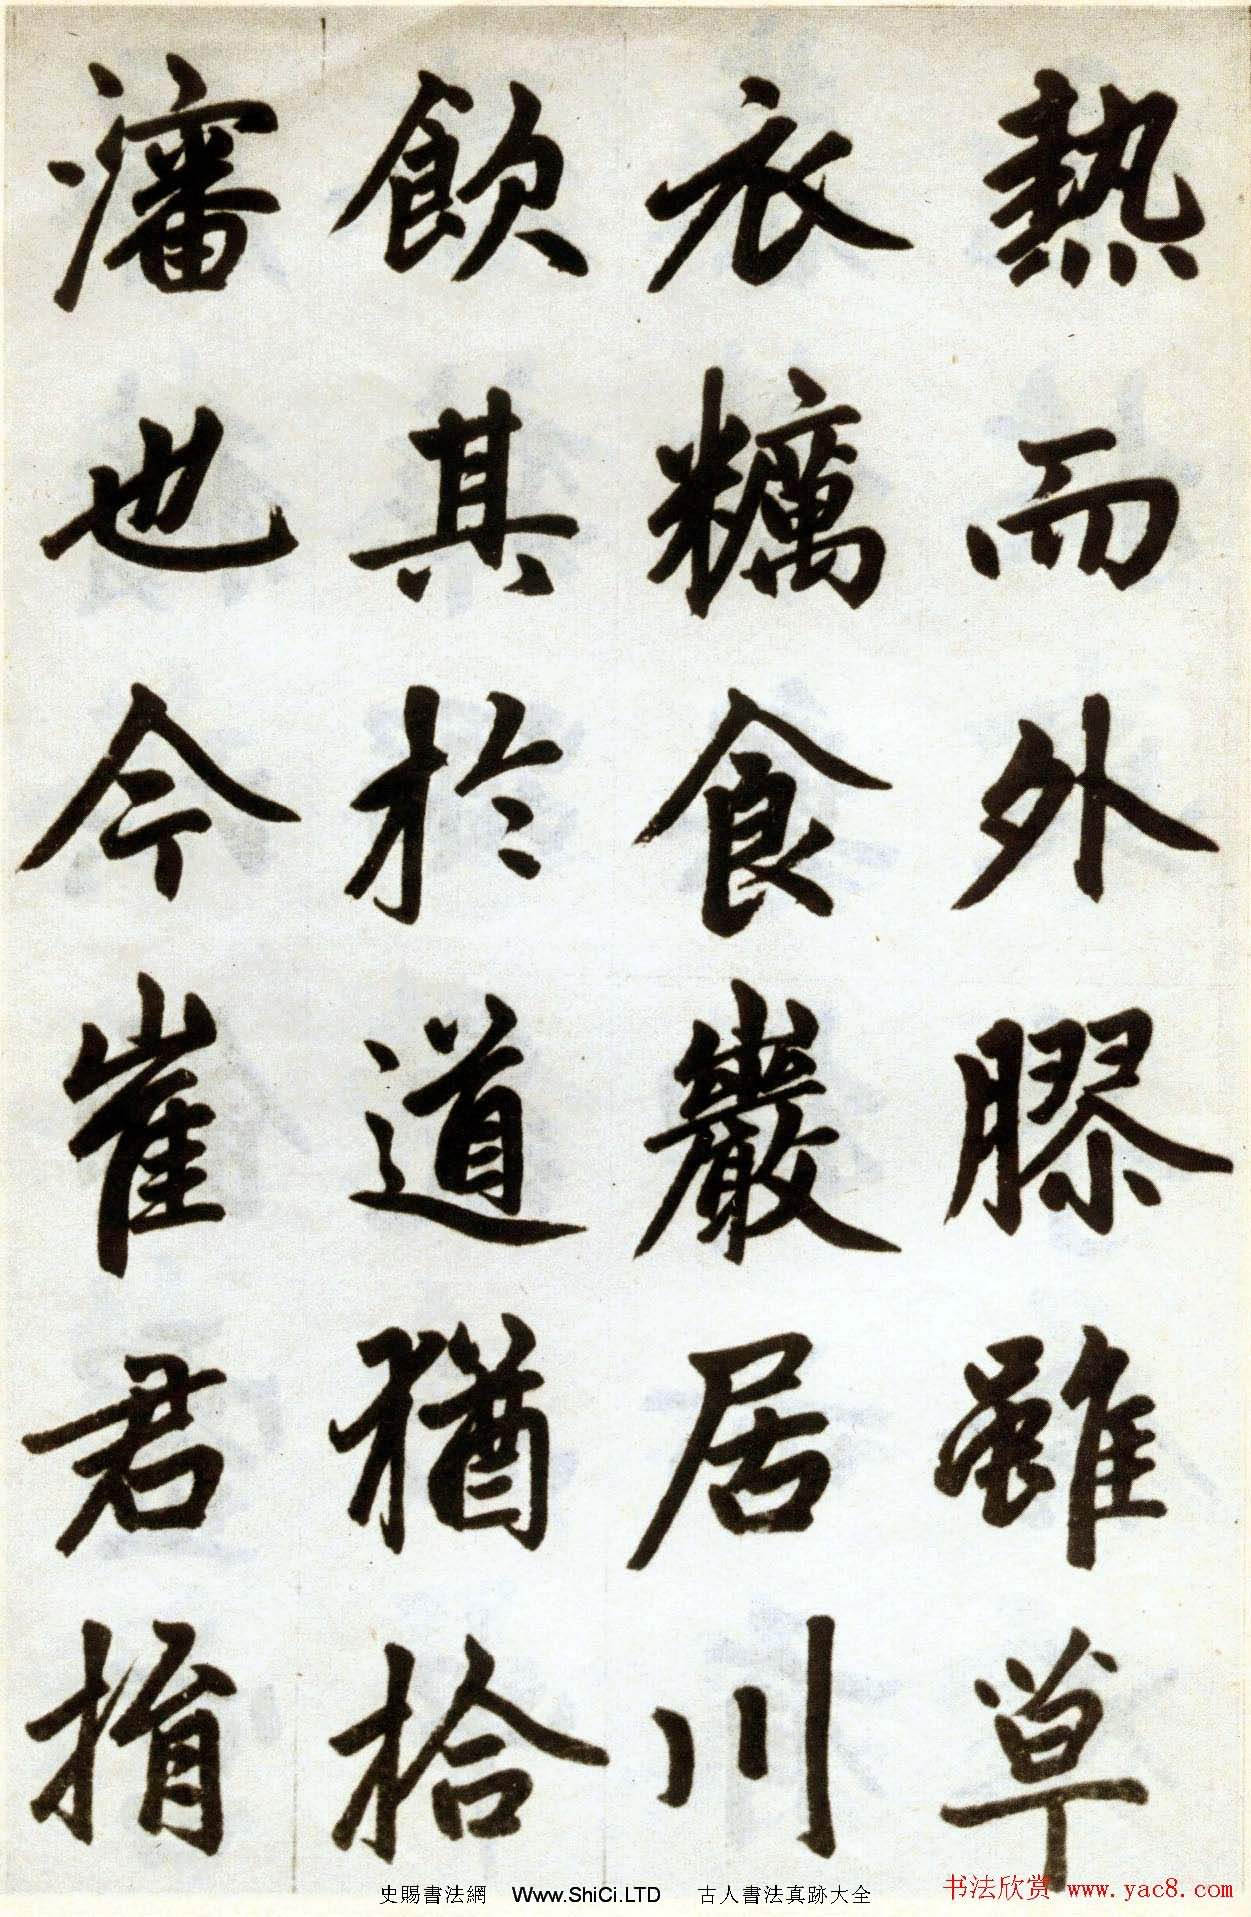 熱而外膠雖草
衣糲食巖居川
飲其於道猶拾
瀋也今崔君揹
史賜書法網 Www.ShiCi.LTD 古人書法真跡大全
书法欣赏 www.yac8.com